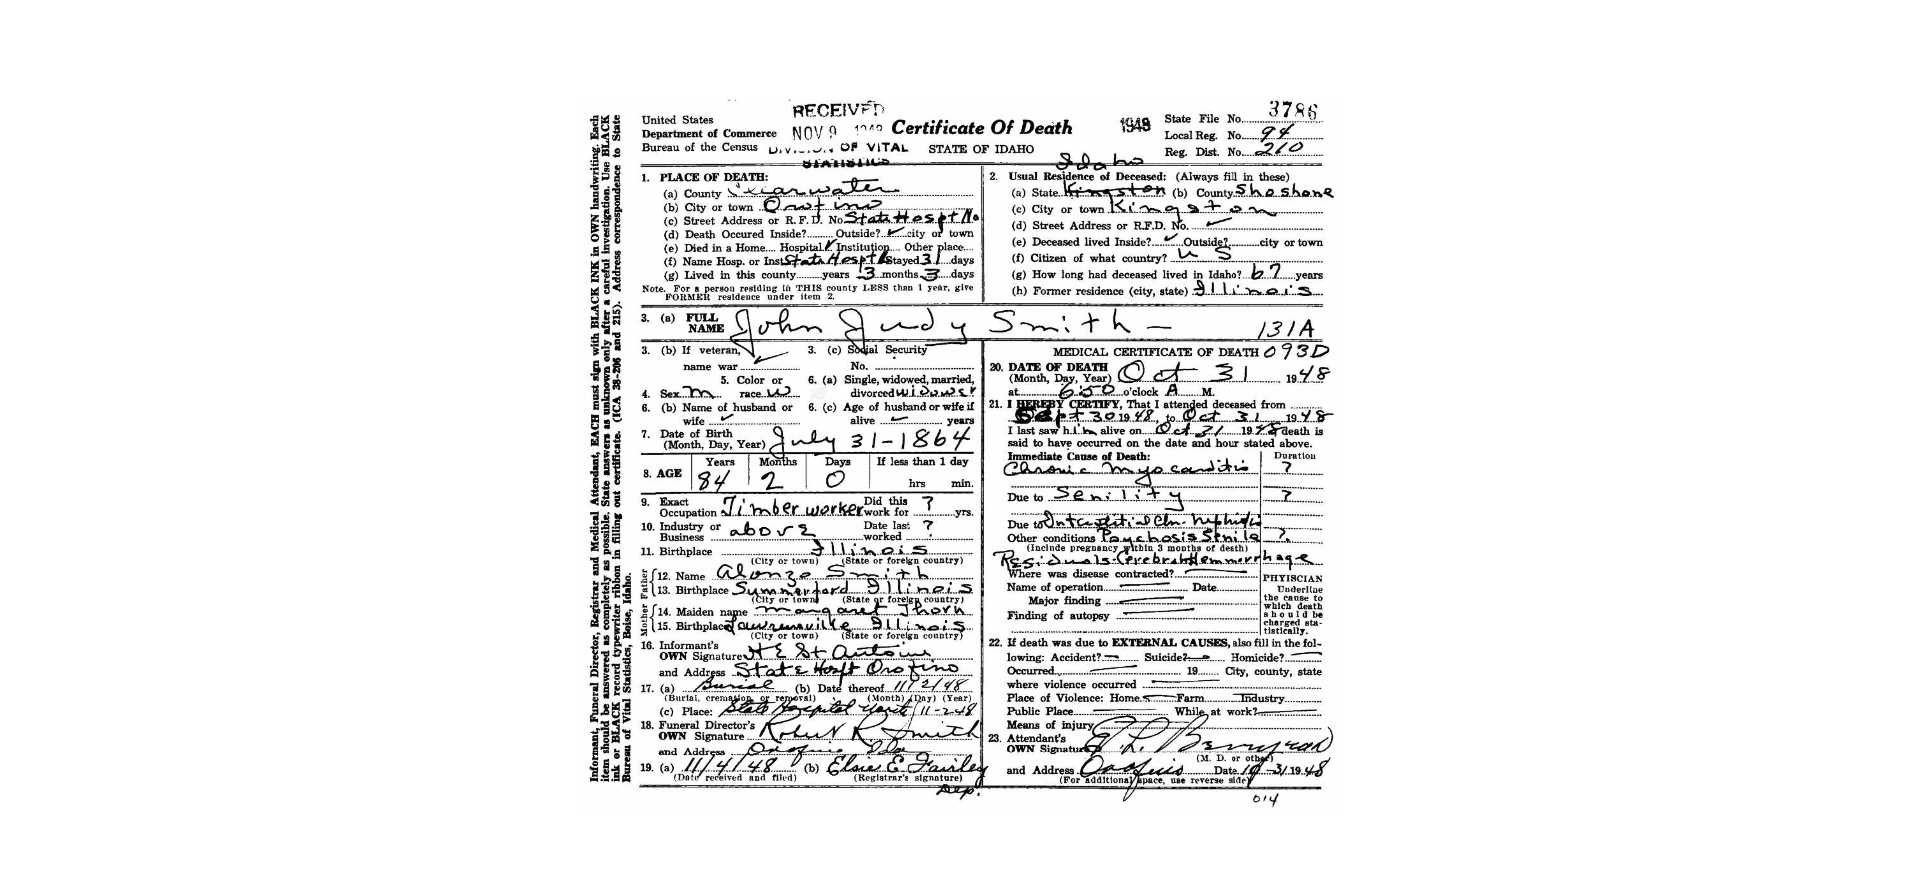 Informant, Funeral Director, Registrar and Medical Attendant, EACH must sign with BLACK INK in OWN handwriting. Each
item should be answered as completely as possible. State answers as unknown only after a careful investigation. Use BLACK
ink or BLACK record typewriter ribbon in filling out certificate. (ICA 38-206 and 215). Address correspondence to State
Bureau of Vital Statistics, Boise, Idaho.
United States
Department of Commerce
Bureau of the Census
RECEIVED
NOV 9
DIVISION OF VITAL
STATISTICS
Certificate Of Death
STATE OF IDAHO
1948
State File No. 3786
Local Reg. No. 94
Reg. Dist. No. 210
1. PLACE OF DEATH:
(a) County Clearwater
(b) City or town Orofino
(c) Street Address or R.F.D. No State Hospt No
(d) Death Occured Inside? Outside? ✓ city or town
(e) Died in a Home Hospital ✓ Institution Other place
(f) Name Hosp. or Inst State Hospt Stayed 31 days
(g) Lived in this county years 3 months 3 days
Note. For a person residing in THIS county LESS than 1 year, give
FORMER residence under item 2.
2. Usual Residence of Deceased: (Always fill in these)
Idaho
(a) State Kingston (b) County Shoshone
(c) City or town Kingston
(d) Street Address or R.F.D. No. ✓
(e) Deceased lived Inside? ✓ Outside? city or town
(f) Citizen of what country? U S
(g) How long had deceased lived in Idaho? 67 years
(h) Former residence (city, state) Illinois
3. (a) FULL NAME John Judy Smith — 131A
3. (b) If veteran, name war ✓
3. (c) Social Security No.
4. Sex m 5. Color or race w
6. (a) Single, widowed, married, divorced widower
6. (b) Name of husband or wife ✓
6. (c) Age of husband or wife if alive ✓ years
7. Date of Birth (Month, Day, Year) July 31-1864
8. AGE Years 84 Months 2 Days 0 If less than 1 day hrs min.
9. Exact Occupation Timber worker Did this work for ? yrs.
10. Industry or Business above Date last worked ?
11. Birthplace Illinois
(City or town) (State or foreign country)
Father
12. Name Alonzo Smith
13. Birthplace Summerford Illinois
(City or town) (State or foreign country)
Mother
14. Maiden name Margaret Thorn
15. Birthplace Lawrensville Illinois
(City or town) (State or foreign country)
16. Informant's OWN Signature H E St Antoine
and Address State Hospt Orofino
17. (a) Burial (b) Date thereof 11/2/48
(Burial, cremation, or removal) (Month) (Day) (Year)
(c) Place: State Hospital 11-2-48
18. Funeral Director's OWN Signature Robert R Smith
and Address Orofino Ida
19. (a) 11/4/48 (b) Elsie E Fairley
(Date received and filed) (Registrar's signature)
Dep.
MEDICAL CERTIFICATE OF DEATH 093D
20. DATE OF DEATH
(Month, Day, Year) Oct 31 1948
at 6:50 o'clock A M.
21. I HEREBY CERTIFY, That I attended deceased from
Sept 30 1948, to Oct 31 1948
I last saw him alive on Oct 31 1948 death is
said to have occurred on the date and hour stated above.
Immediate Cause of Death: Duration
Chronic myocarditis ?
Due to Senility ?
Due to Interstitial Chr. nephritis
Other conditions Psychosis Senile ?
(Include pregnancy within 3 months of death)
Residuals Cerebral Hemmorrhage
Where was disease contracted?
Name of operation Date
Major finding
Finding of autopsy
PHYISCIAN
Underline
the cause to
which death
should be
charged sta-
tistically.
22. If death was due to EXTERNAL CAUSES, also fill in the fol-
lowing: Accident? Suicide? Homicide?
Occurred 19 City, county, state
where violence occurred
Place of Violence: Home Farm Industry
Public Place While at work?
Means of injury
23. Attendant's OWN Signature
(M. D. or other)
and Address Orofino Date 10-31 1948
(For additional space, use reverse side)
014